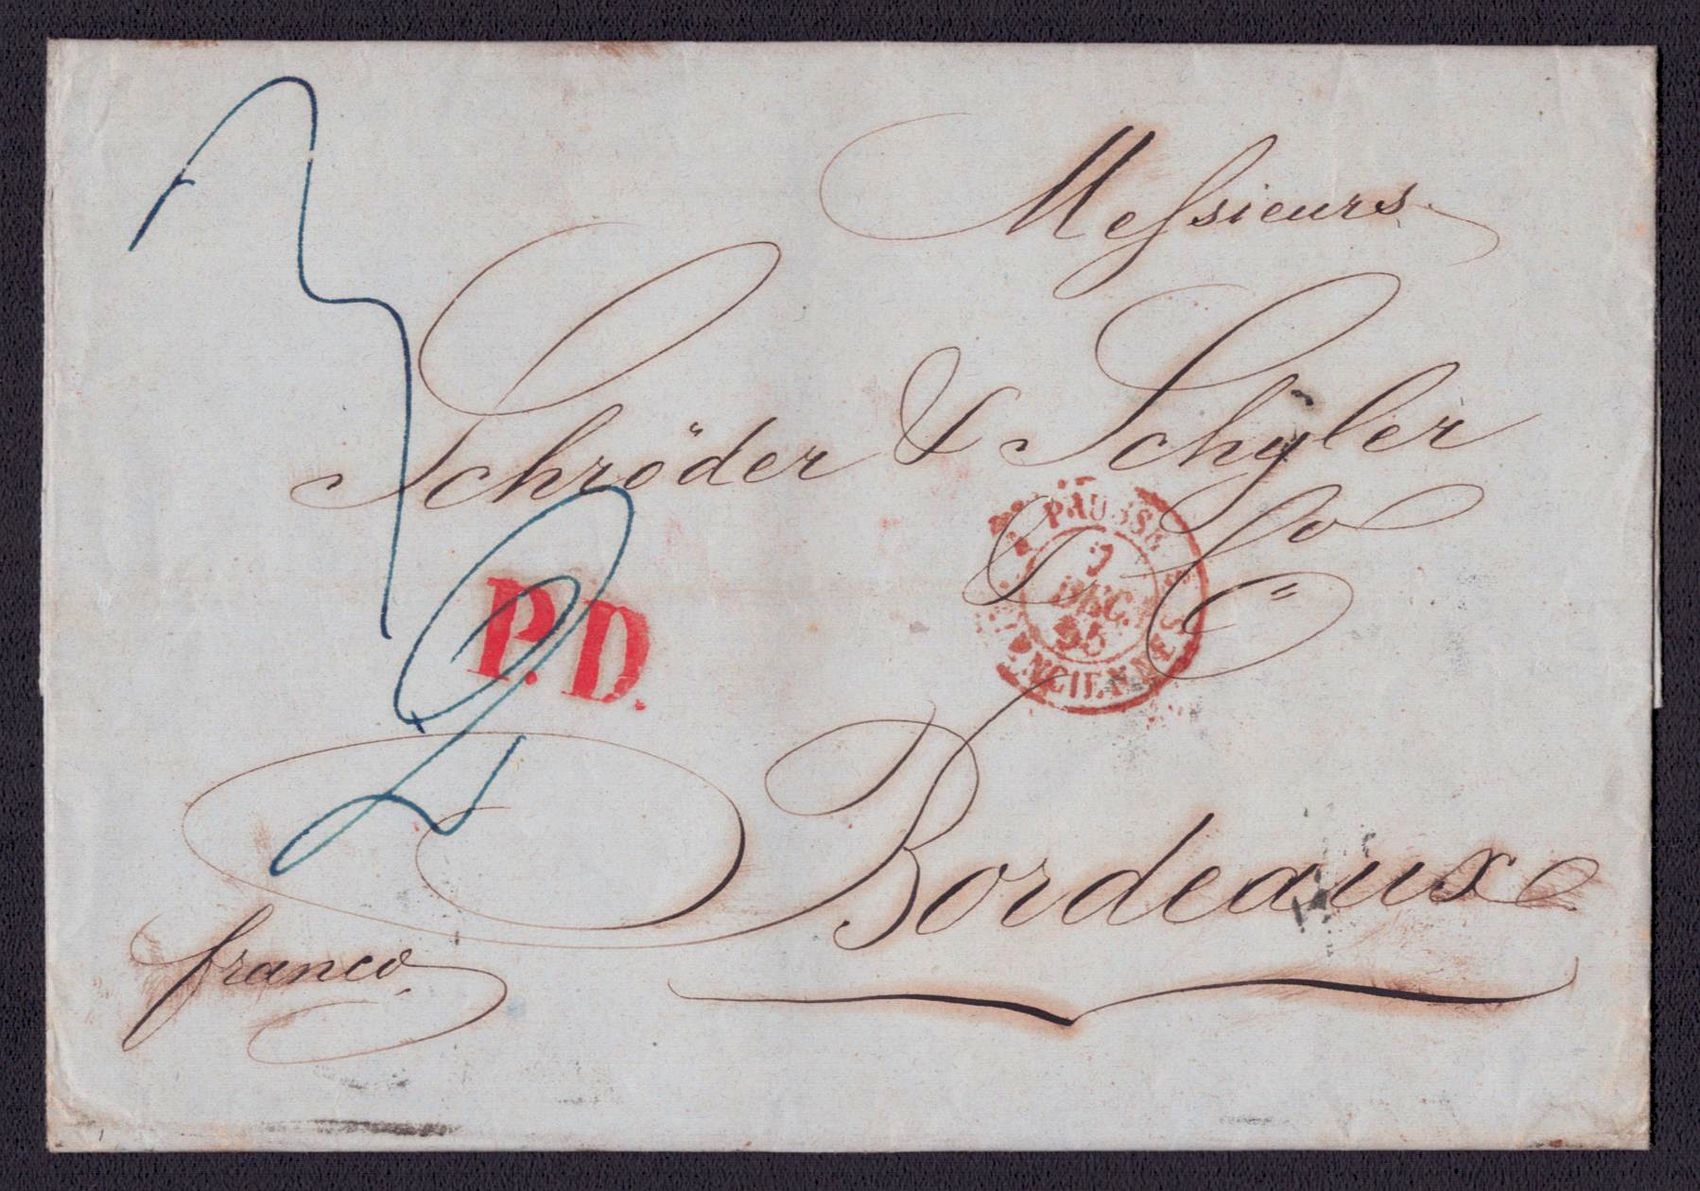 Messieurs
Schröder & Schÿler
& Co
P.D.
PRUSSE
7
DEC.
55
VALENCIENNES
Bordeaux
franco